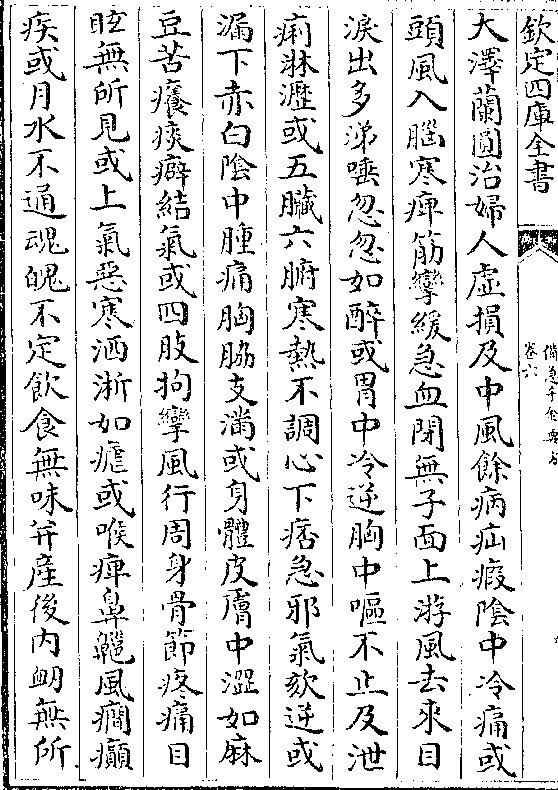 欽定四庫全書
備急千金要方
卷六
大澤蘭圓治婦人虛損及中風餘病疝瘕陰中冷痛或
頭風入腦寒痺筋攣緩急血閉無子面上游風去來目
淚出多涕唾忽忽如醉或胃中冷逆胸中嘔不止及泄
痢淋瀝或五臟六腑寒熱不調心下痞急邪氣欬逆或
漏下赤白陰中腫痛胸脇支滿或身體皮膚中澀如麻
豆苦癢痰癖結氣或四肢拘攣風行周身骨節疼痛目
眩無所見或上氣惡寒洒淅如瘧或喉痺鼻齆風癎癲
疾或月水不通魂魄不定飲食無味并産後内衂無所